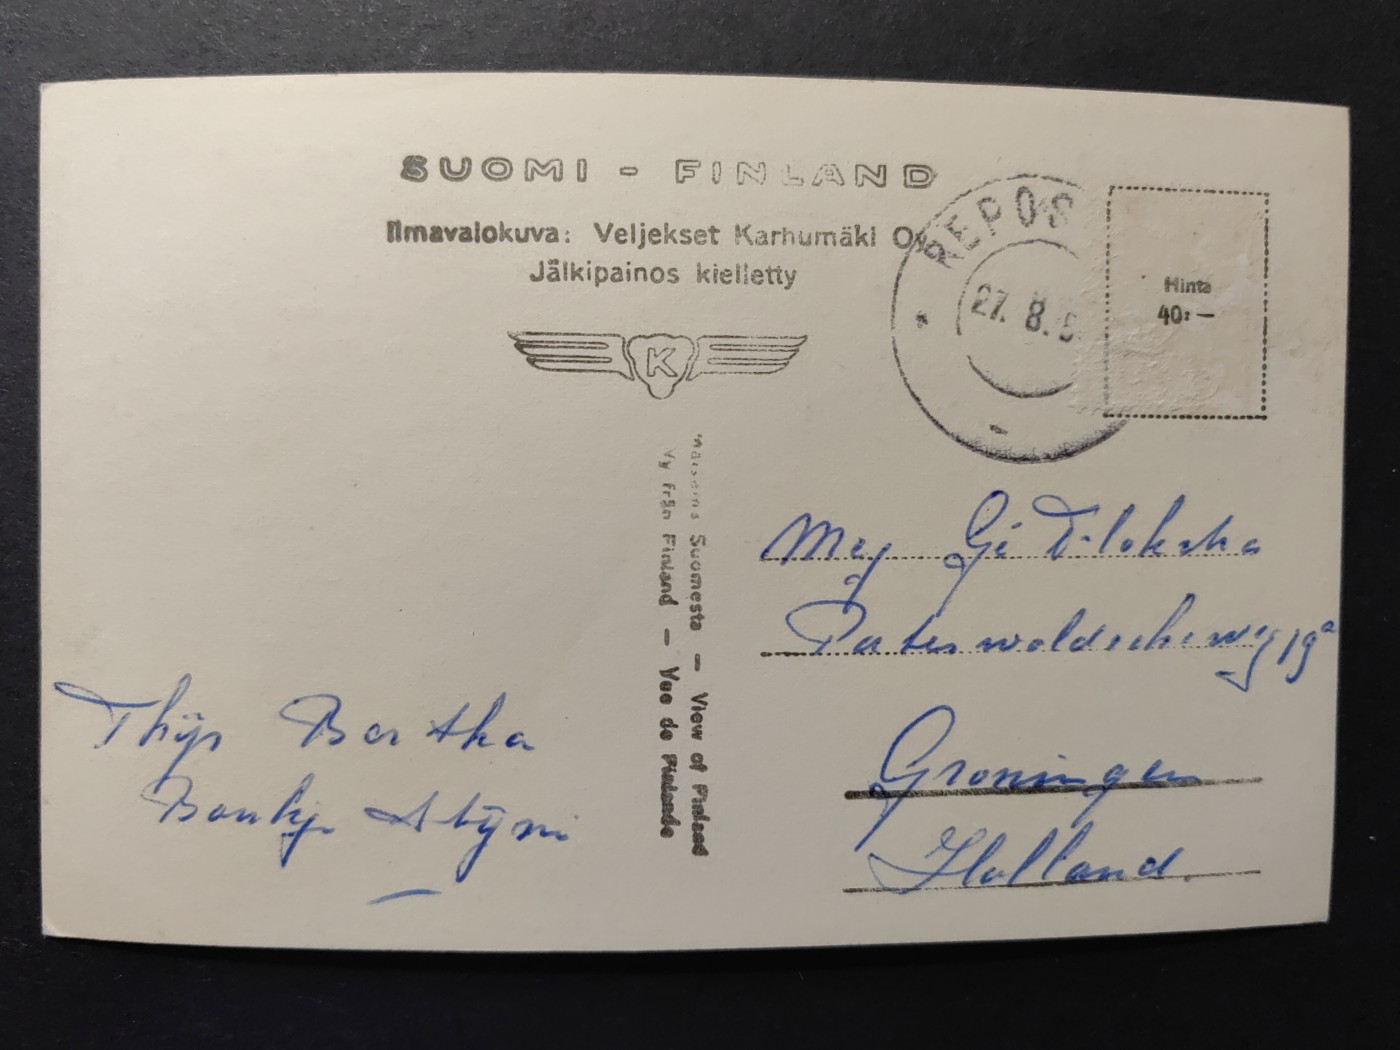 SUOMI - FINLAND
Ilmavalokuva: Veljekset Karhumäki Oy
Jälkipainos kielletty
K
REPOS
27. 8. 5
Hinta
40:—
Maisema Suomesta — View of Finland
Vy från Finland — Vee de Finlande
Mej Gé
Paterswoldseweg 19a
Groningen
Holland.
Thijs Bertha
Boukje